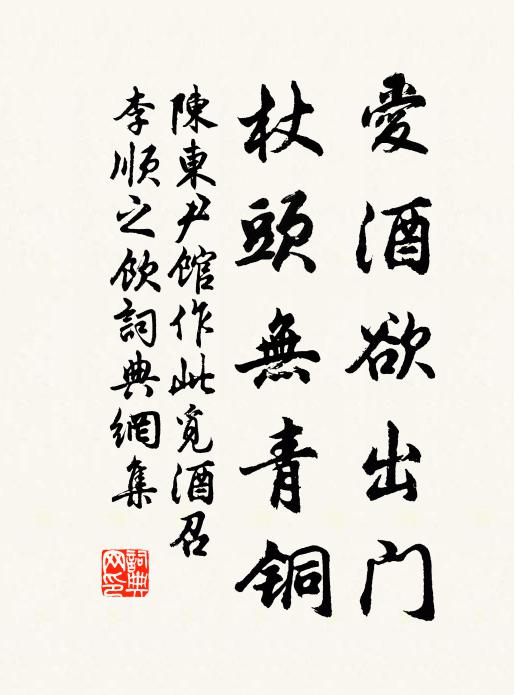 愛酒欲出门
杖頭無青铜
陳東尹館作此覓酒召
李順之飲詞典網集
詞典网印